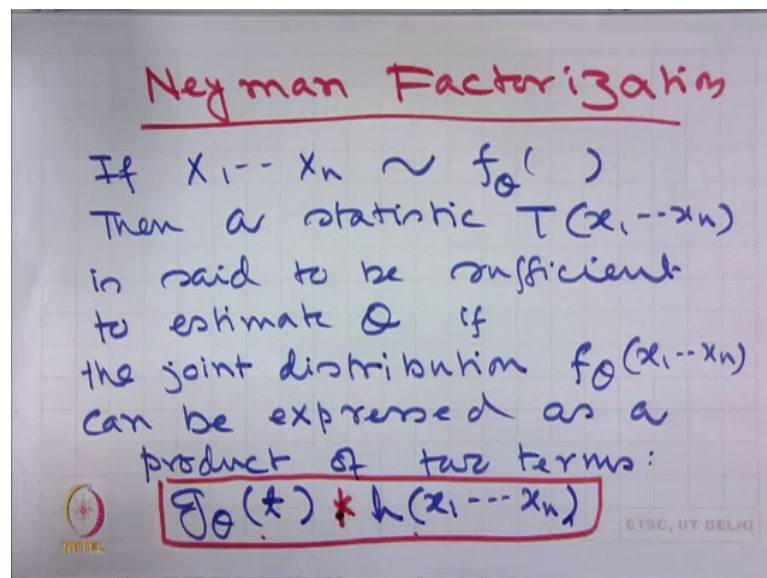 Neyman Factorization
If X1-- Xn ~ fθ( )
Then a statistic T(x1,--xn)
is said to be sufficient
to estimate θ if
the joint distribution fθ(x1,--xn)
can be expressed as a
product of two terms:
gθ(t) * h(x1 --- xn)
NPTEL
ETSC, IIT DELHI